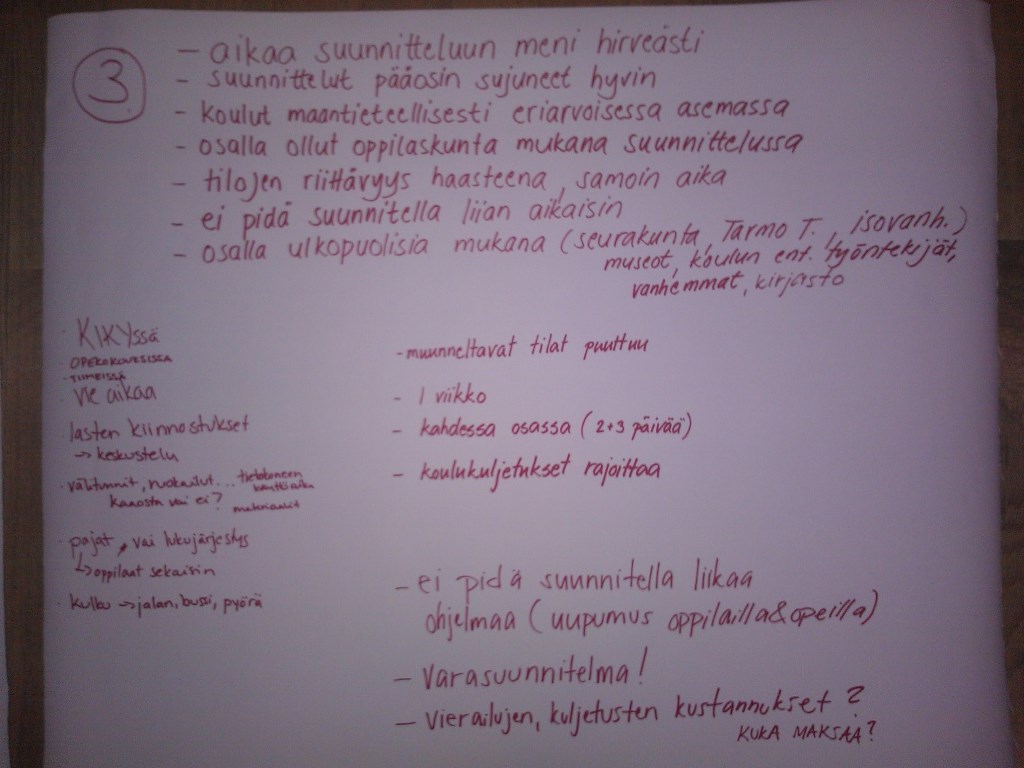 3
- aikaa suunnitteluun meni hirveästi
- suunnittelut pääosin sujuneet hyvin
- koulut maantieteellisesti eriarvoisessa asemassa
- osalla ollut oppilaskunta mukana suunnittelussa
- tilojen riittävyys haasteena, samoin aika
- ei pidä suunnitella liian aikaisin
- osalla ulkopuolisia mukana (seurakunta, Tarmo T., isovanh.)
museot, koulun ent. työntekijät,
vanhemmat, kirjasto
· KIKYssä
· OPEKOKOUKSISSA
· TIIMEISSÄ
vie aikaa
· lasten kiinnostukset
→ keskustelu
· välitunnit, ruokailut... tietokoneen
käyttöaika
kaaosta vai ei? materiaalit
· pajat, vai lukujärjestys
↳ oppilaat sekaisin
· kulku → jalan, bussi, pyörä
- muunneltavat tilat puuttuu
- 1 viikko
- kahdessa osassa (2+3 päivää)
- koulukuljetukset rajoittaa
- ei pidä suunnitella liikaa
ohjelmaa (uupumus oppilailla&opeilla)
- varasuunnitelma!
- vierailujen, kuljetusten kustannukset?
KUKA MAKSAA?